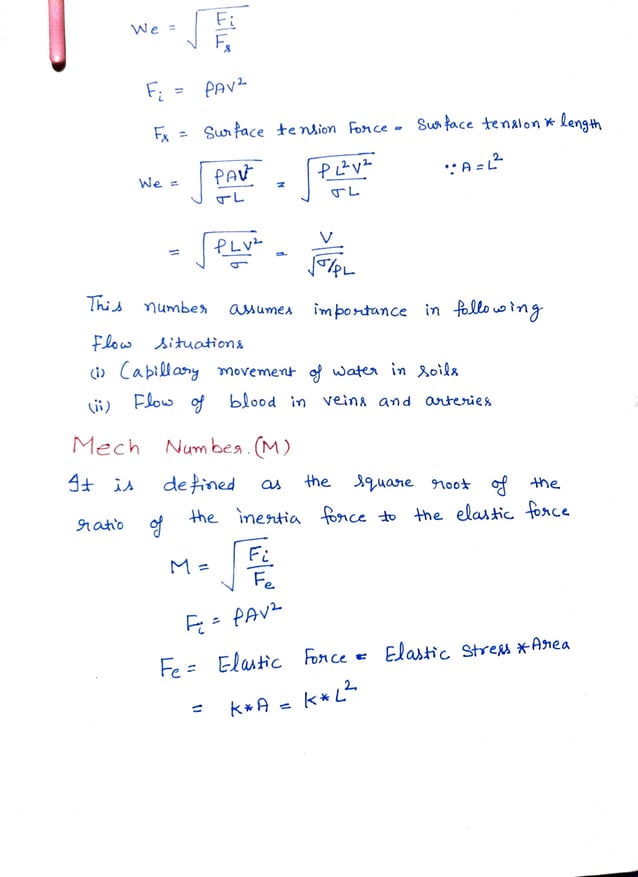 We = √(Fi/Fs)
Fi = ρAV²
Fs = Surface tension Force = Surface tension * length
We = √(ρAV²/σL) = √(ρL²V²/σL) ∵ A = L²
= √(ρLV²/σ) = V/√(σ/ρL)
This number assumes importance in following
Flow situations
(i) Capillary movement of water in soils
(ii) Flow of blood in veins and arteries
Mech Number. (M)
It is defined as the square root of the
ratio of the inertia force to the elastic force
M = √(Fi/Fe)
Fi = ρAV²
Fe = Elastic Force = Elastic Stress * Area
= K*A = K*L²